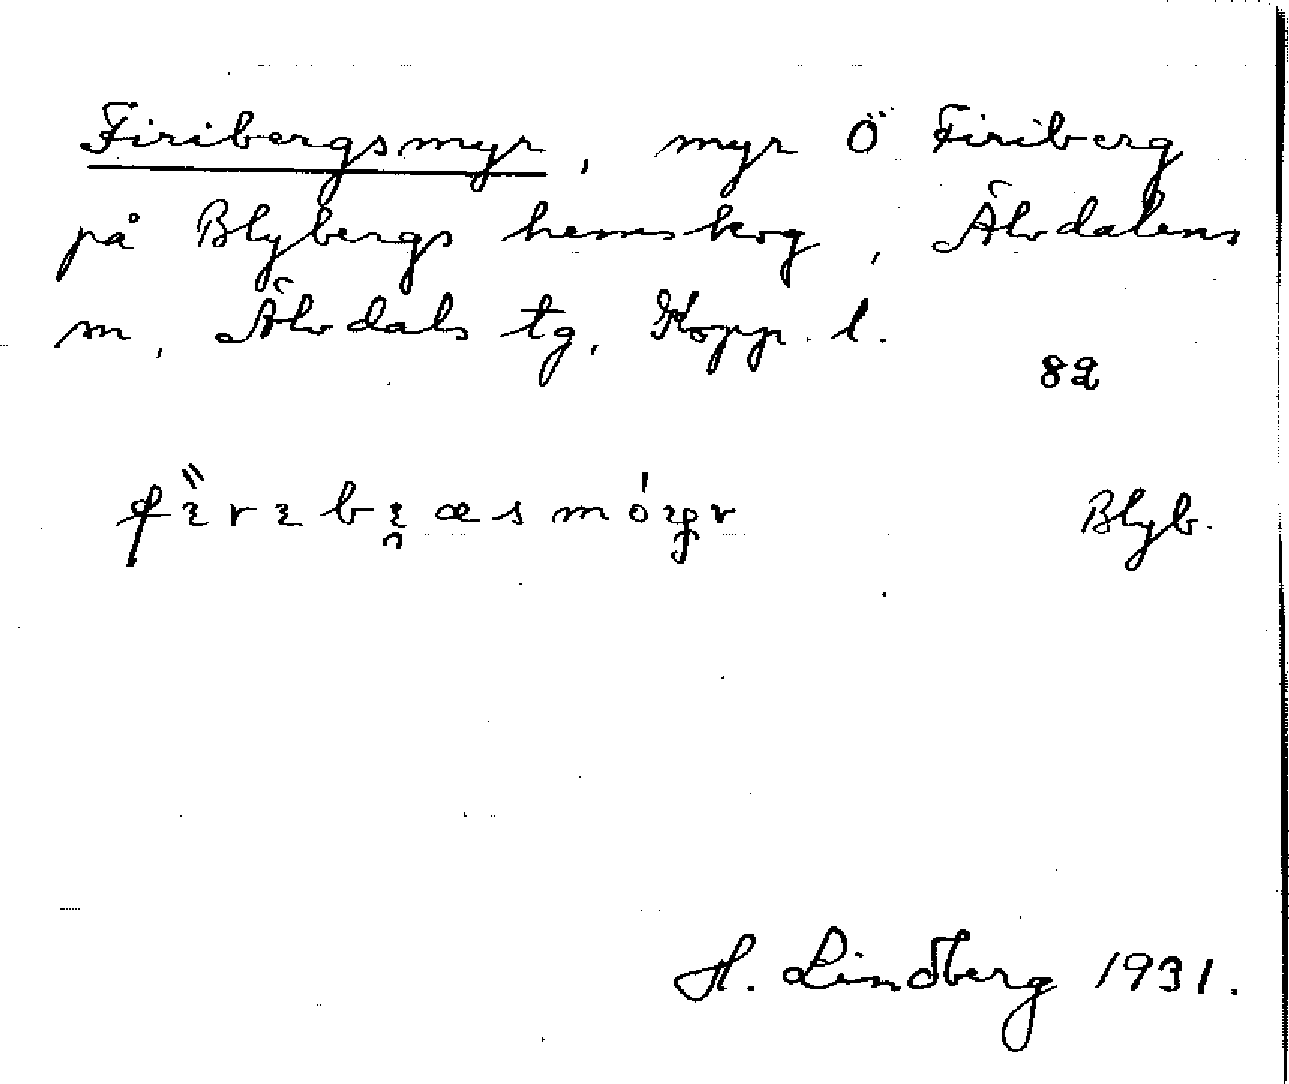 Firibergsmyr, myr Ö Firiberg
på Blybergs hemskog, Älvdalens
m, Älvdals tg, Kopp. l.
82
Blyb.
H. Lindberg 1931.